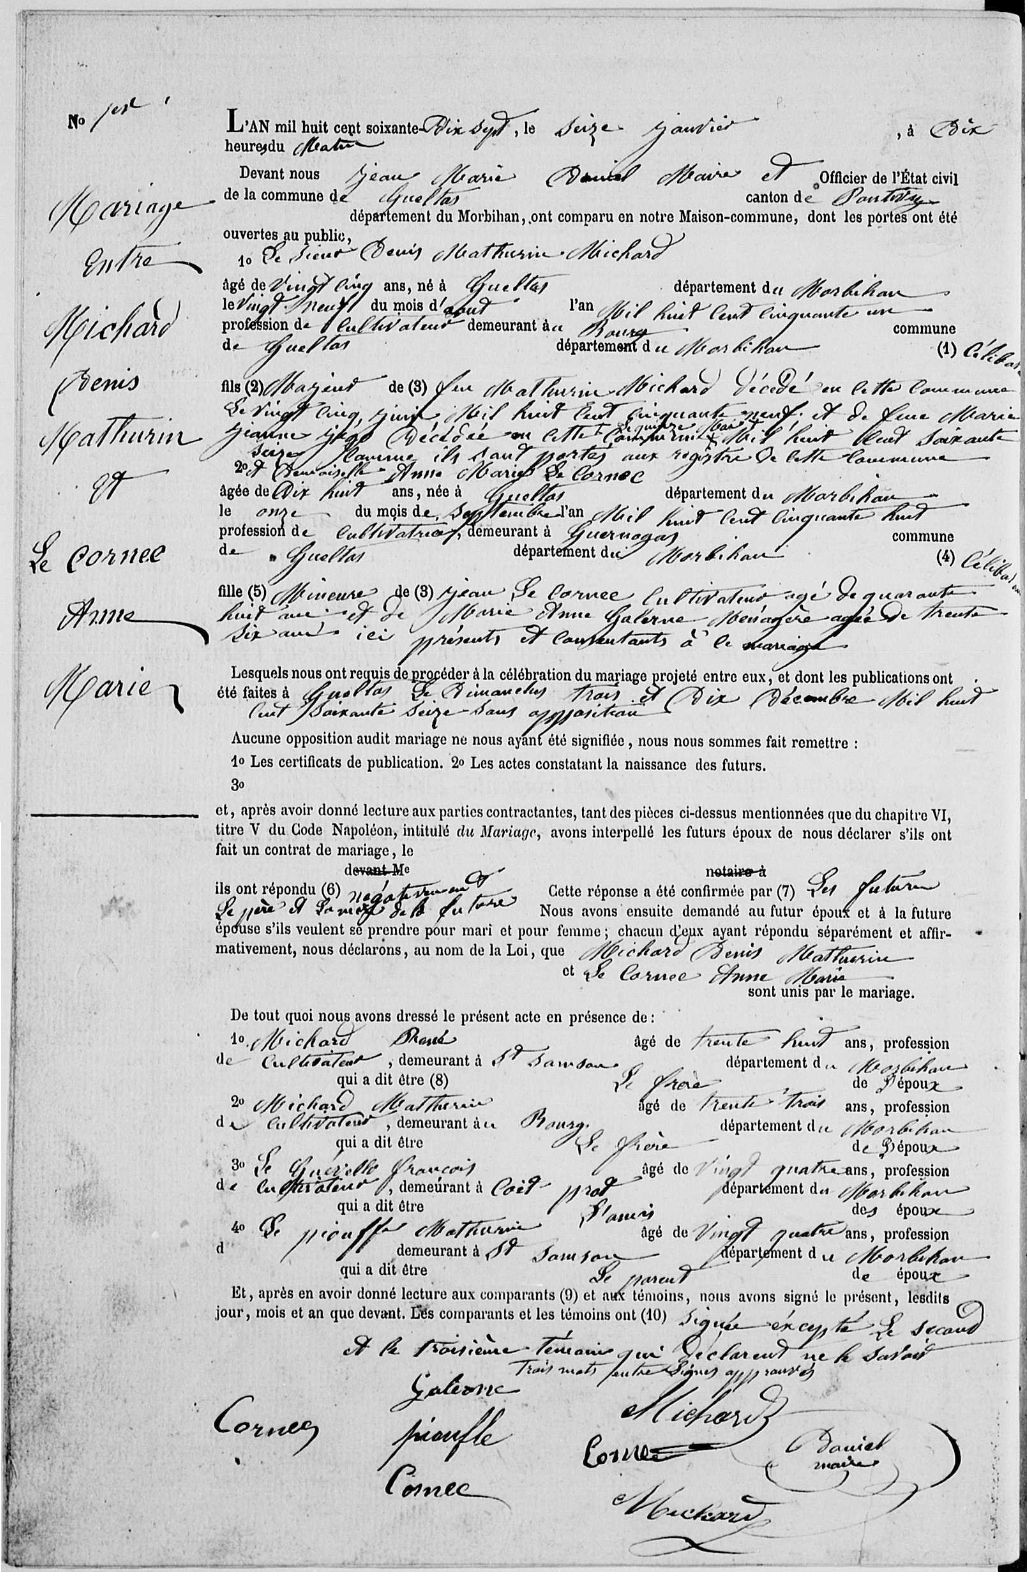 No 1er
Mariage
Entre
Michard
Denis
Mathurin
Et
Le Cornec
Anne
Marie
L'AN mil huit cent soixante-Dix Sept, le Seize Janvier, à Dix
heures du Matin
Devant nous Jean Marie Daniel Maire et Officier de l'État civil
de la commune de Gueltas canton de Pontivy
département du Morbihan, ont comparu en notre Maison-commune, dont les portes ont été
ouvertes au public,
1o Le Sieur Denis Mathurin Michard
âgé de Vingt Cinq ans, né à Gueltas département du Morbihan
le Vingt-Neuf du mois d'aout l'an Mil huit Cent Cinquante un
profession de Cultivateur demeurant au Bourg commune
de Gueltas département du Morbihan (1) Céliba
fils (2) Majeur de (3) feu Mathurin Michard décédé en cette commune
Le Vingt Cinq Juin Mil huit Cent Cinquante neuf et de feue Marie
Jeanne Jégo Décédée en cette Commune Mil huit Cent Soixante
Seize Comme ils sont portés aux registre de cette Commune
2o et Demoiselle Anne Marie Le Cornec
âgée de Dix huit ans, née à Gueltas département du Morbihan
le onze du mois de Septembre l'an Mil huit Cent Cinquante huit
profession de Cultivatrice, demeurant à Guernogas commune
de Gueltas département du Morbihan (4) Céliba
fille (5) Mineure de (3) Jean Le Cornec Cultivateur agé de quarante
huit ans et de Marie Anne Galerne Ménagère agée de trente
Six ans ici présents et Consentants à ce mariage
Lesquels nous ont requis de procéder à la célébration du mariage projeté entre eux, et dont les publications ont
été faites à Gueltas Le Dimanches trois et Dix Décembre Mil huit
Cent Soixante Seize Sans opposition
Aucune opposition audit mariage ne nous ayant été signifiée, nous nous sommes fait remettre :
1o Les certificats de publication. 2o Les actes constatant la naissance des futurs.
3o
et, après avoir donné lecture aux parties contractantes, tant des pièces ci-dessus mentionnées que du chapitre VI,
titre V du Code Napoléon, intitulé du Mariage, avons interpellé les futurs époux de nous déclarer s'ils ont
fait un contrat de mariage, le
devant Me notaire à
ils ont répondu (6) négativement Cette réponse a été confirmée par (7) Les futurs
Le père et La mère de la future Nous avons ensuite demandé au futur époux et à la future
épouse s'ils veulent se prendre pour mari et pour femme ; chacun d'eux ayant répondu séparément et affir-
mativement, nous déclarons, au nom de la Loi, que Michard Denis Mathurin
et Le Cornec Anne Marie
sont unis par le mariage.
De tout quoi nous avons dressé le présent acte en présence de :
1o Michard René âgé de trente huit ans, profession
de Cultivateur, demeurant à St Samson département du Morbihan
qui a dit être (8) Le frère de L'époux
2o Michard Mathurin âgé de trente trois ans, profession
de Cultivateur, demeurant au Bourg département du Morbihan
qui a dit être Le frère de L'époux
3o Le Guévello francois âgé de Vingt quatre ans, profession
de Cultivateur, demeurant à Coët prat département du Morbihan
qui a dit être L'amis des époux
4o Le piouffle Mathurin âgé de Vingt quatre ans, profession
d demeurant à St Samson département du Morbihan
qui a dit être Le parent de époux
Et, après en avoir donné lecture aux comparants (9) et aux témoins, nous avons signé le présent, lesdits
jour, mois et an que devant. Les comparants et les témoins ont (10) Signée éxcepté Le Second
et le troisième témoin qui déclarent ne le savoir
trois mots entre Lignes approuvés
Galerne
Michard
Cornec
piouffle
Cornec
Daniel
maire
Cornec
Michard